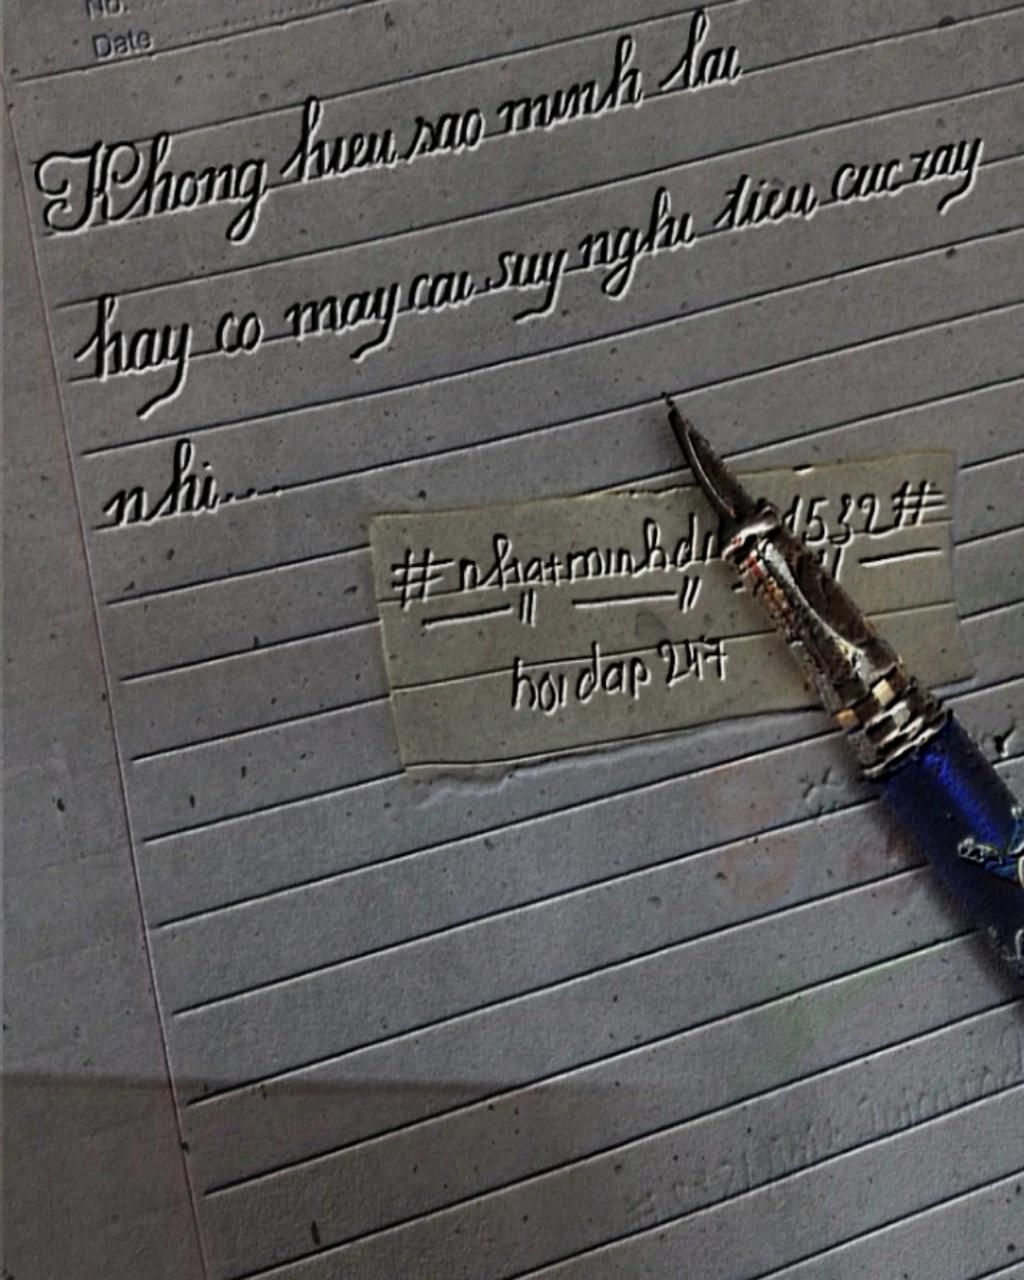 No.
Date
Khong hieu sao minh lai
hay co may cai suy nghi tieu cuc zay
nhi....
#nhatminhdu 1532#
hoidap 247